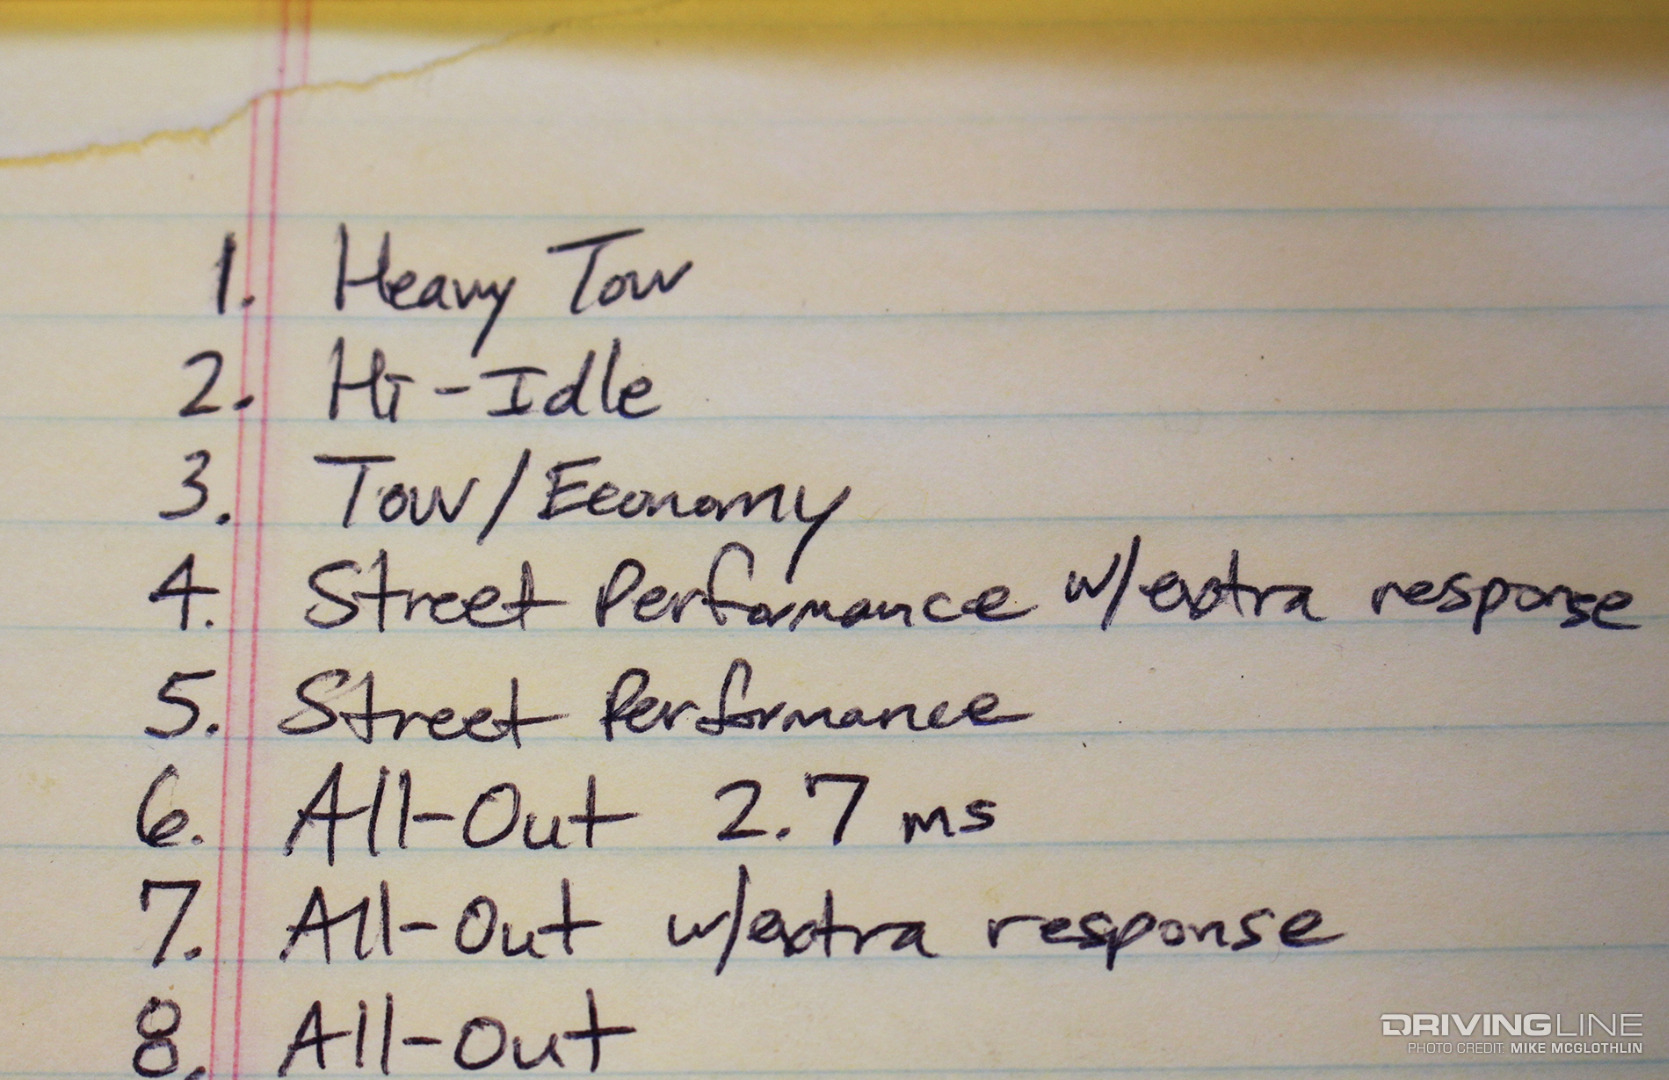 1. Heavy Tow
2. Hi-Idle
3. Tow/Economy
4. Street Performance w/extra response
5. Street Performance
6. All-Out 2.7 ms
7. All-Out w/extra response
8. All-Out
DRIVINGLINE
PHOTO CREDIT MIKE MCGLOTHLIN